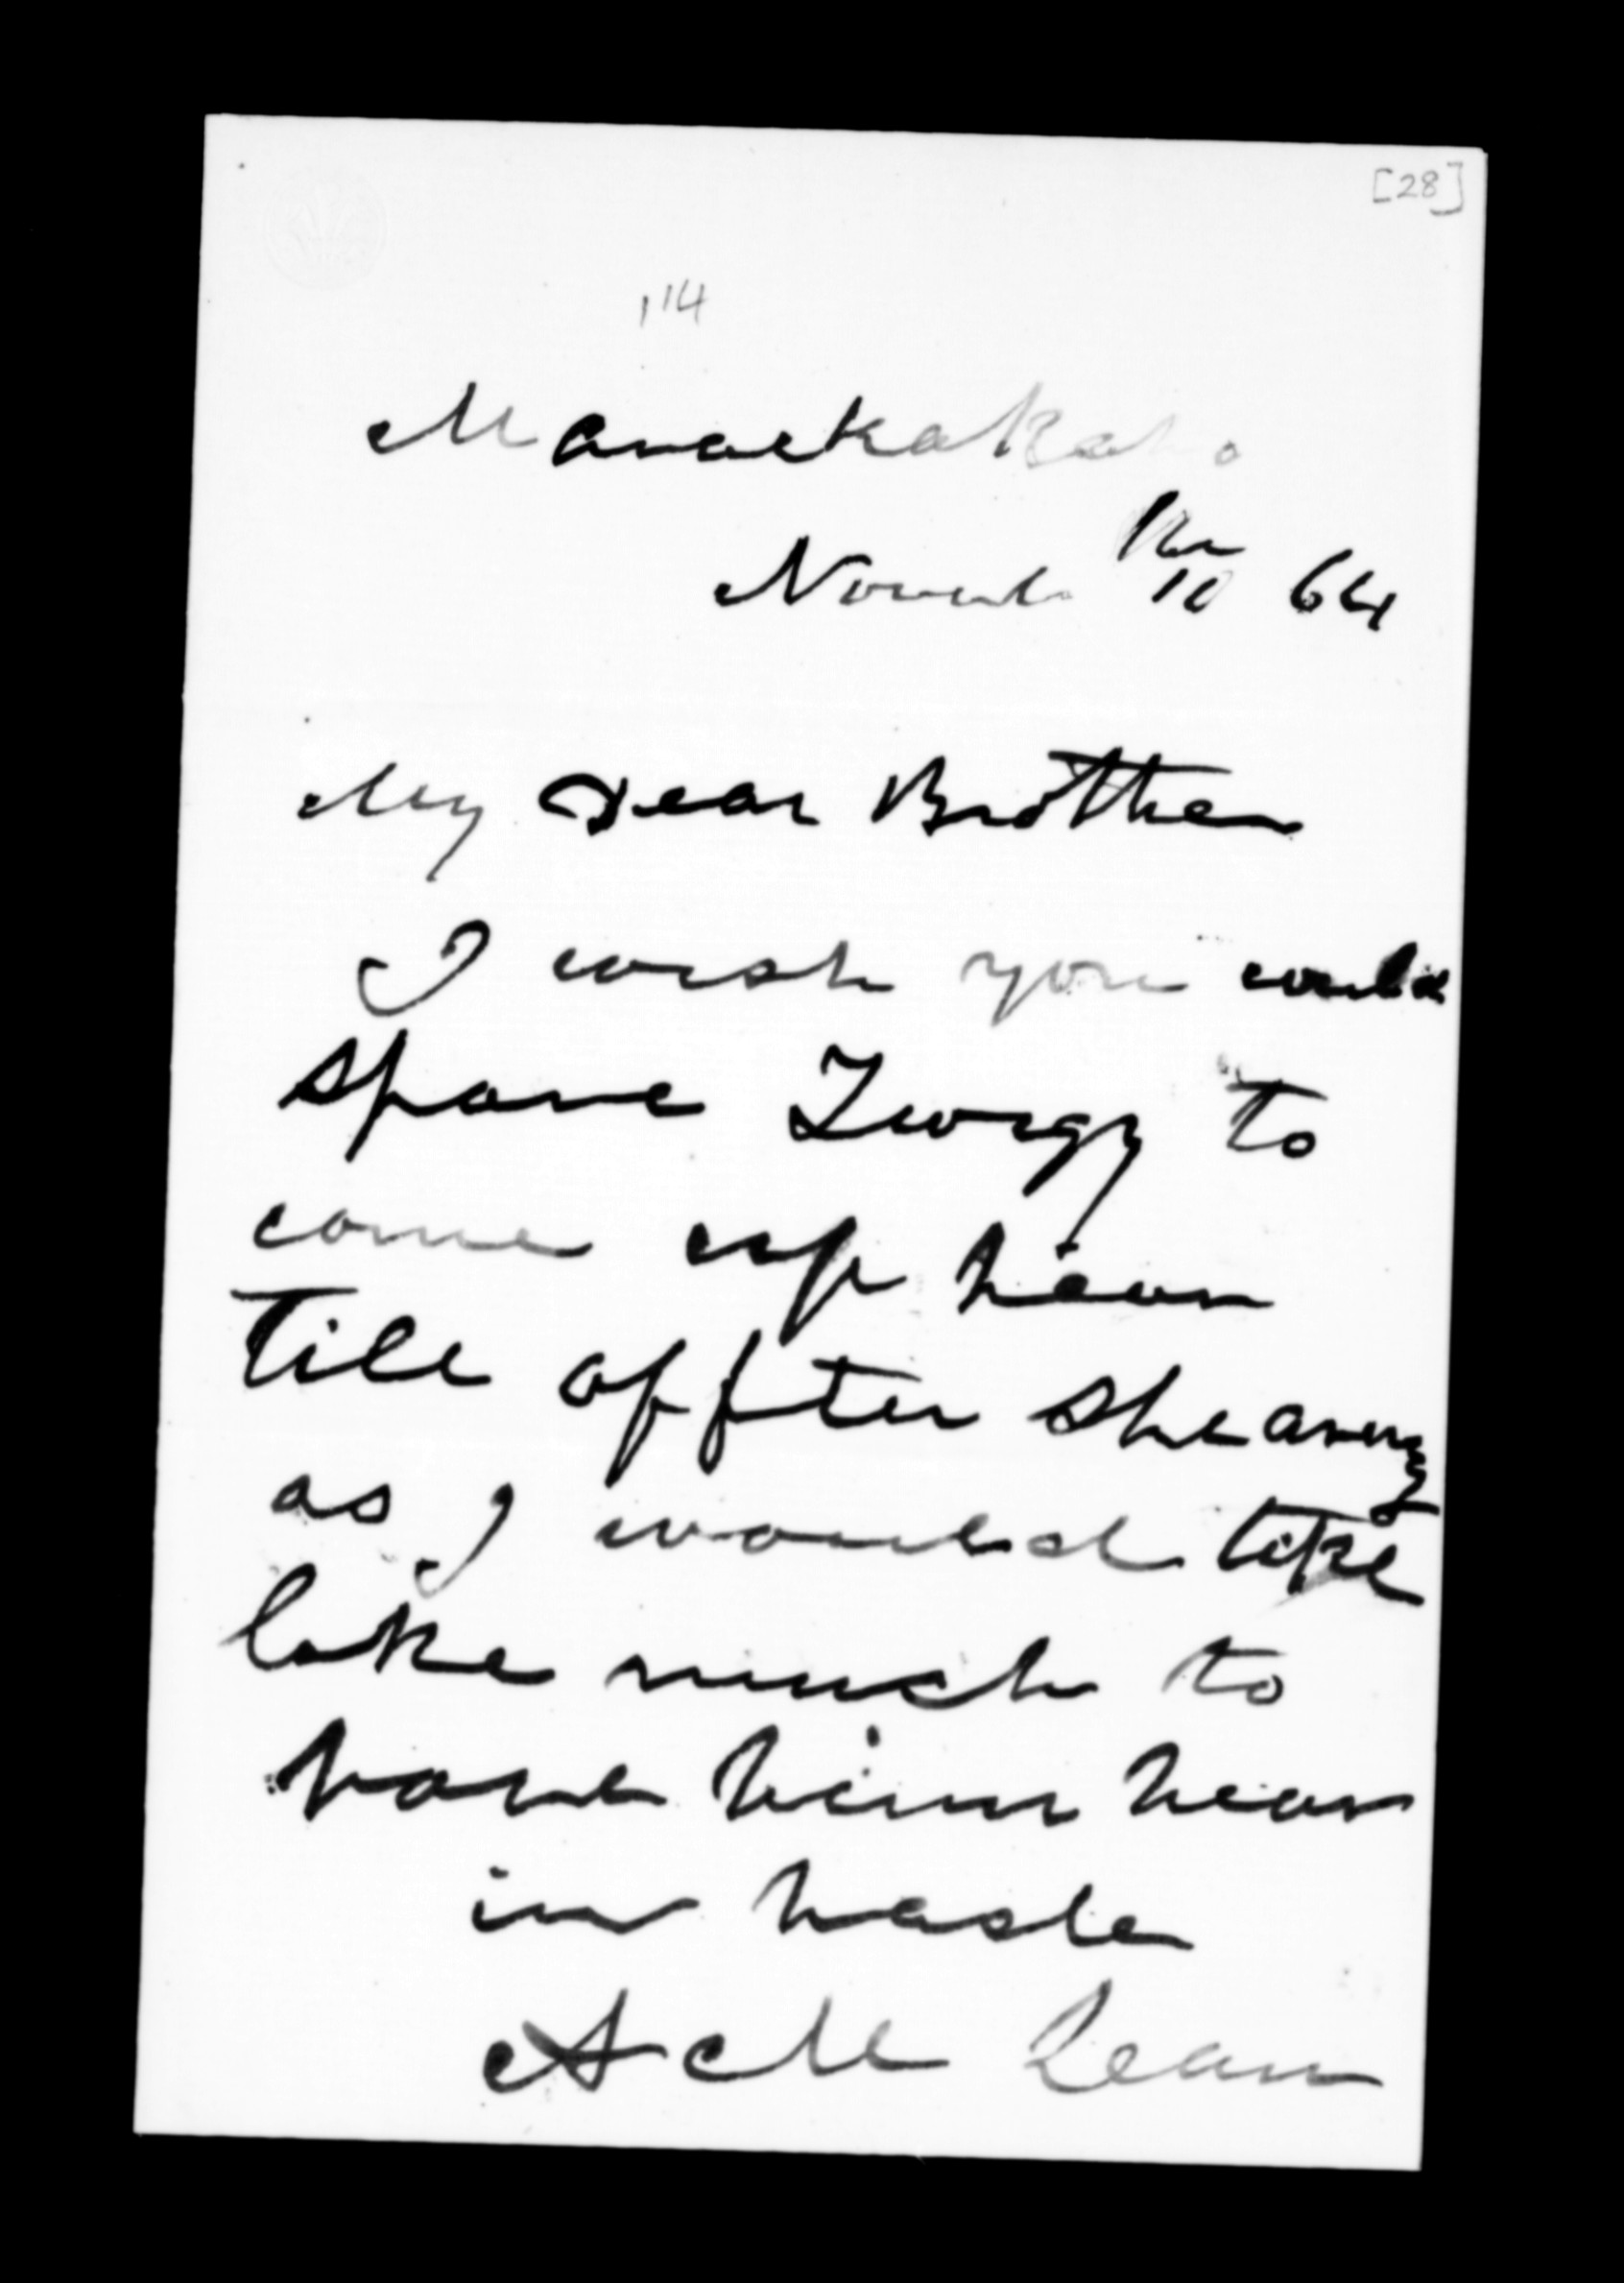 [28]
114
Maraekakaho
Novemb 10 64
My Dear Brother
I wish you could
spare Twigy to
come up hear
Till affter shearing
as I would like
like much to
have him hear
in haste
A McLean